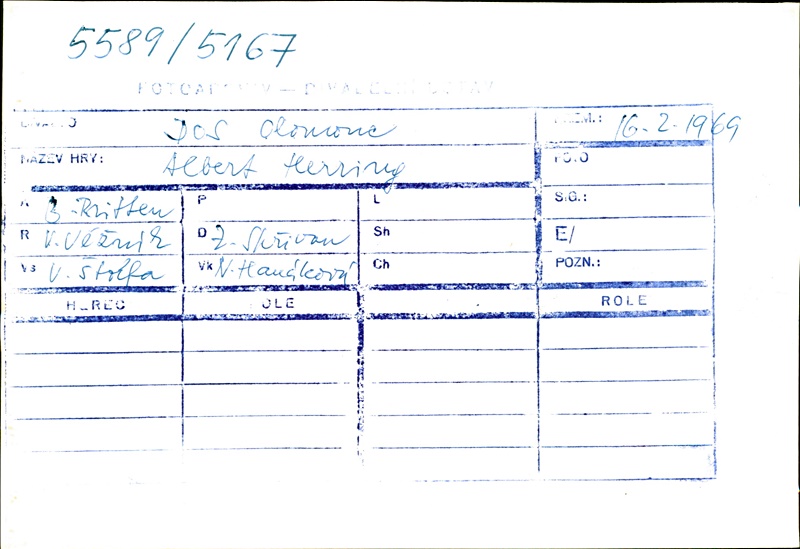 5589/5167
FOTOARCHIV – DIVADELNÍ ÚSTAV
DIVADLO DOS Olomouc PREM.: 16.2.1969
NÁZEV HRY: Albert Herring FOTO
A B. Britten P L SIG.:
R V. Věžník D Z. Skřivan Sh E/
Vs V. Štolfa Vk N. Hanáková Ch POZN.:
HEREC ROLE ROLE